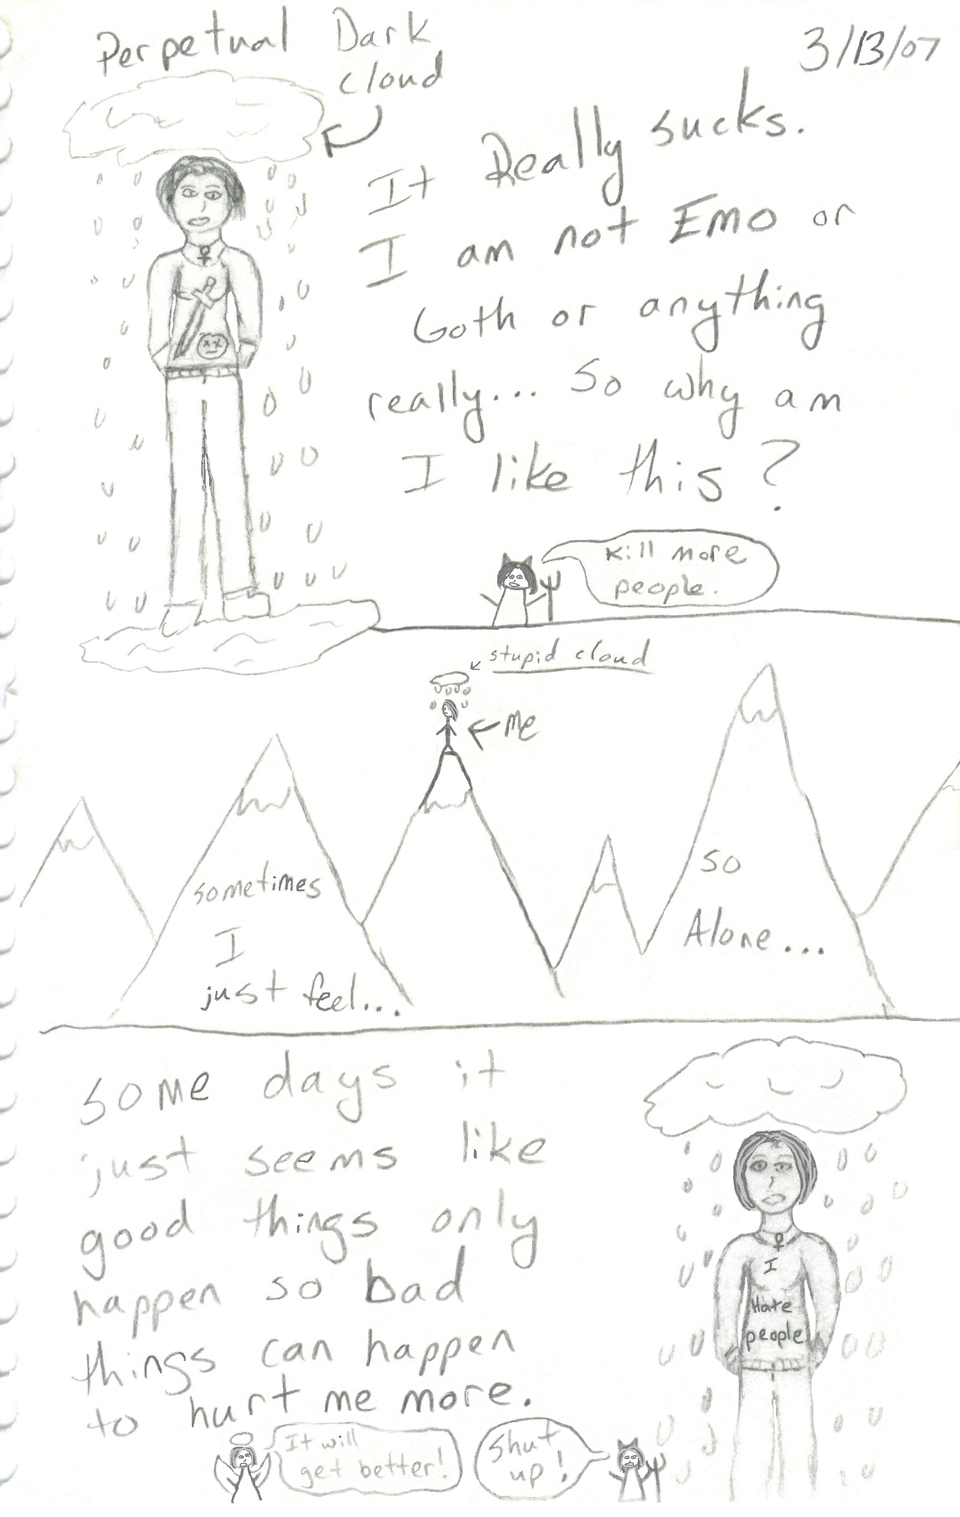 Perpetual Dark
cloud
3/13/07
It Really sucks.
I am not Emo or
Goth or anything
really... So why am
I like this?
Kill more
people.
stupid cloud
Me
sometimes
I
just feel...
so
Alone...
some days it
just seems like
good things only
happen so bad
things can happen
to hurt me more.
I
Hate
people
It will
get better!
Shut
up!